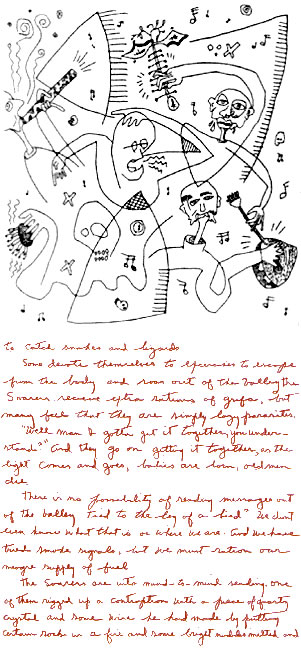 to catch snakes and lizards.
Some devote themselves to exercises to escape
from the body and soar out of the valley. The
Soarers receive extra rations of grifa, but
many feel that they are simply lazy parasites.
"Well man I gotta get it together, you under-
stand?" And they go on getting it together, as the
light comes and goes, babies are born, old men
die.
There is no possibility of sending messages out
of the valley tied to the leg of a bird. We don't
even know what that is or where we are. And we have
tried smoke signals, but we must ration our
meagre supply of fuel.
The Soarers are into mind-to-mind sending, one
of them rigged up a contraption with a piece of quartz
crystal and some wire he had made by putting
certain rocks in a fire and some bright nodules melted and